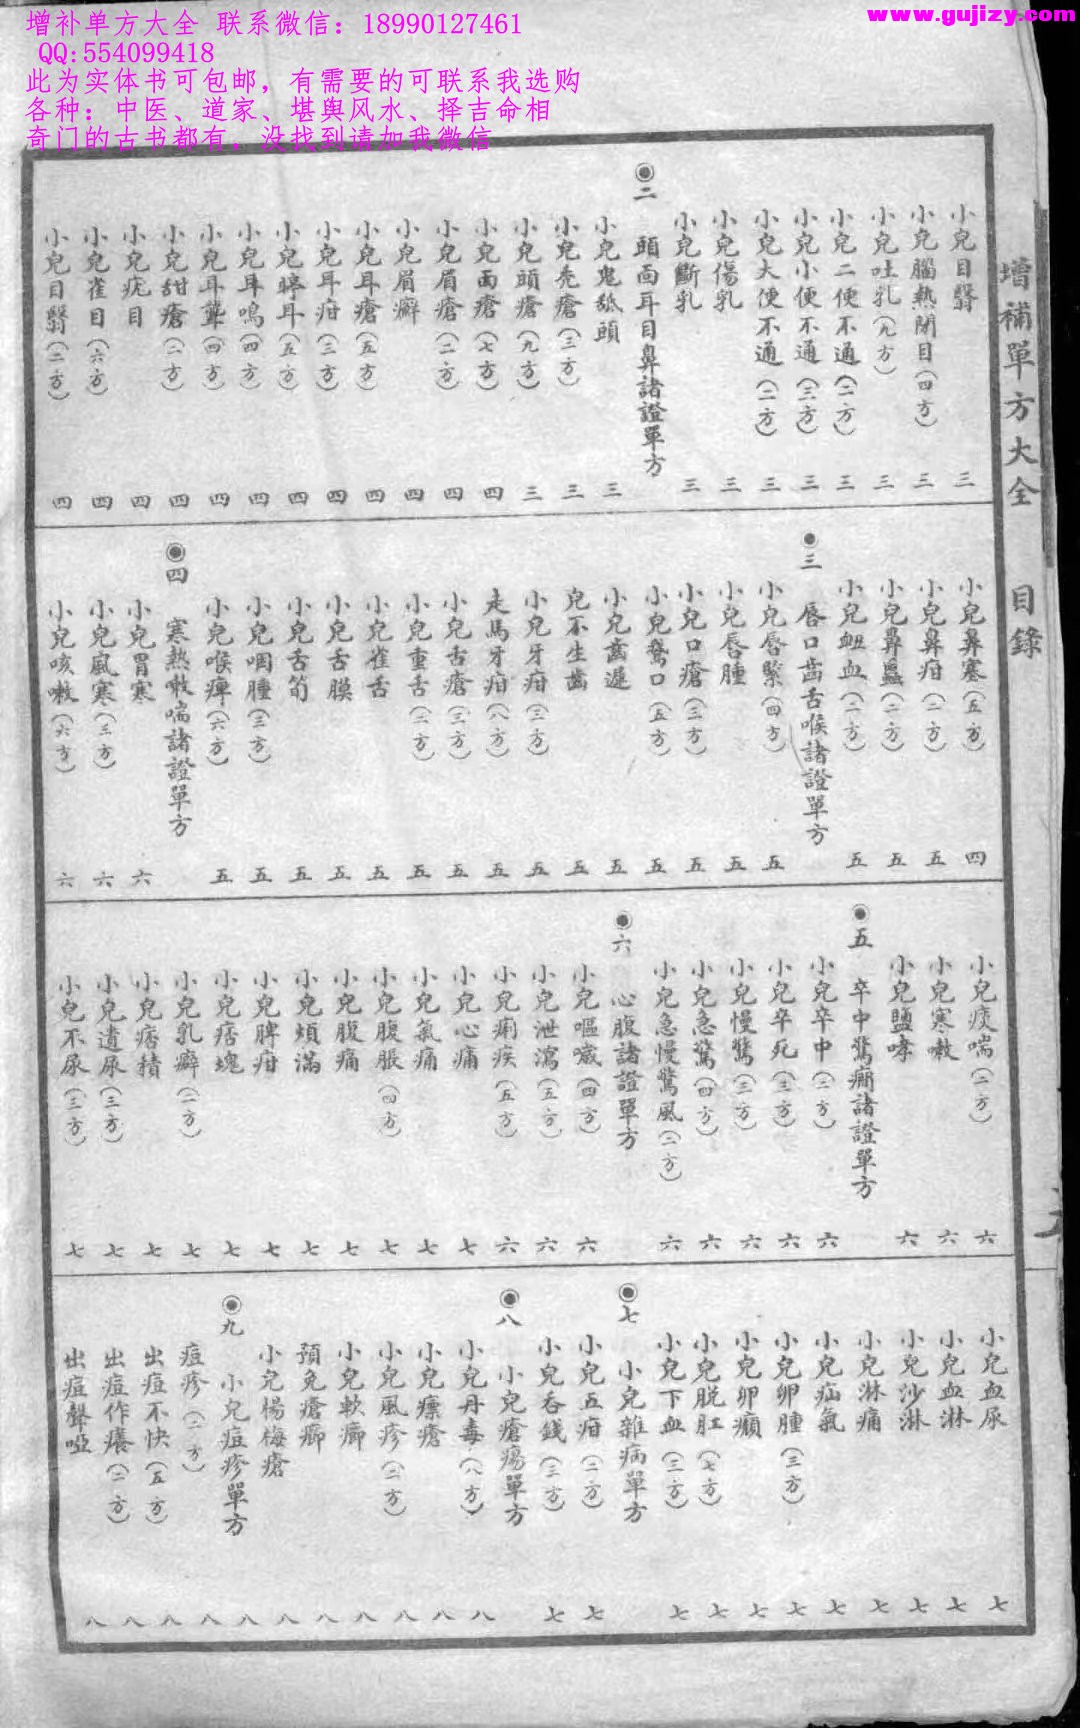 增补单方大全 联系微信: 18990127461
QQ:554099418
此为实体书可包邮，有需要的可联系我选购
各种：中医、道家、堪舆风水、择吉命相
奇门的古书都有，没找到请加我微信
www.gujizy.com
增補單方大全 目錄
小兒目翳 三
小兒腦熱閉目(四方) 三
小兒吐乳(九方) 三
小兒二便不通(二方) 三
小兒小便不通(三方) 三
小兒大便不通(二方) 三
小兒傷乳 三
小兒斷乳 三
◉二 頭面耳目鼻諸證單方
小兒鬼舐頭 三
小兒禿瘡(三方) 三
小兒頭瘡(九方) 三
小兒面瘡(七方) 四
小兒眉瘡(二方) 四
小兒眉癬 四
小兒耳瘡(五方) 四
小兒耳疳(三方) 四
小兒聤耳(五方) 四
小兒耳鳴(四方) 四
小兒耳聾(四方) 四
小兒甜瘡(二方) 四
小兒疣目 四
小兒雀目(六方) 四
小兒目翳(二方) 四
小兒鼻塞(五方) 四
小兒鼻疳(二方) 五
小兒鼻䘌(二方) 五
小兒衄血(二方) 五
◉三 唇口齒舌喉諸證單方
小兒唇緊(四方) 五
小兒唇腫 五
小兒口瘡(三方) 五
小兒鵞口(五方) 五
小兒齒遲 五
兒不生齒 五
小兒牙疳(三方) 五
走馬牙疳(八方) 五
小兒舌瘡(三方) 五
小兒重舌(三方) 五
小兒雀舌 五
小兒舌膜 五
小兒舌筍 五
小兒咽腫(三方) 五
小兒喉痺(六方) 五
◉四 寒熱嗽喘諸證單方
小兒胃寒 六
小兒風寒(三方) 六
小兒咳嗽(六方) 六
小兒痰喘(二方) 六
小兒寒嗽 六
小兒鹽哮 六
◉五 卒中驚癎諸證單方
小兒卒中(二方) 六
小兒卒死(三方) 六
小兒慢驚(三方) 六
小兒急驚(四方) 六
小兒急慢驚風(二方) 六
◉六 心腹諸證單方
小兒嘔噦(四方) 六
小兒泄瀉(五方) 六
小兒痢疾(五方) 六
小兒心痛 七
小兒氣痛 七
小兒腹脹(四方) 七
小兒腹痛 七
小兒煩滿 七
小兒脾疳 七
小兒痞塊 七
小兒乳癖(二方) 七
小兒痞積 七
小兒遺尿(三方) 七
小兒不尿(三方) 七
小兒血尿 七
小兒血淋 七
小兒沙淋 七
小兒淋痛 七
小兒疝氣 七
小兒卵腫(三方) 七
小兒卵癩 七
小兒脫肛(七方) 七
小兒下血(三方) 七
◉七 小兒雜病單方
小兒五疳(二方) 七
小兒吞錢(三方) 七
◉八 小兒瘡瘍單方
小兒丹毒(八方) 八
小兒瘭瘡 八
小兒風疹(二方) 八
小兒軟癤 八
預免瘡癤 八
小兒楊梅瘡 八
◉九 小兒痘疹單方
痘疹(二方) 八
出痘不快(五方) 八
出痘作癢(二方) 八
出痘聲啞 八